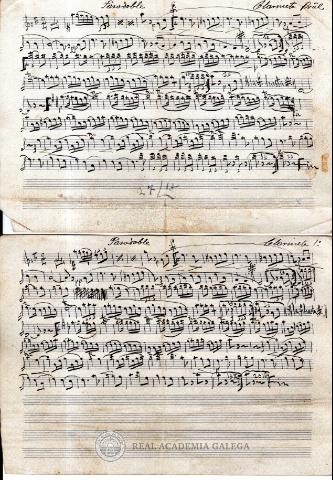 Pasodoble Clarinete Ppal
Fin
Pasodoble Clarinete 1º
Fin
REAL ACADEMIA GALEGA